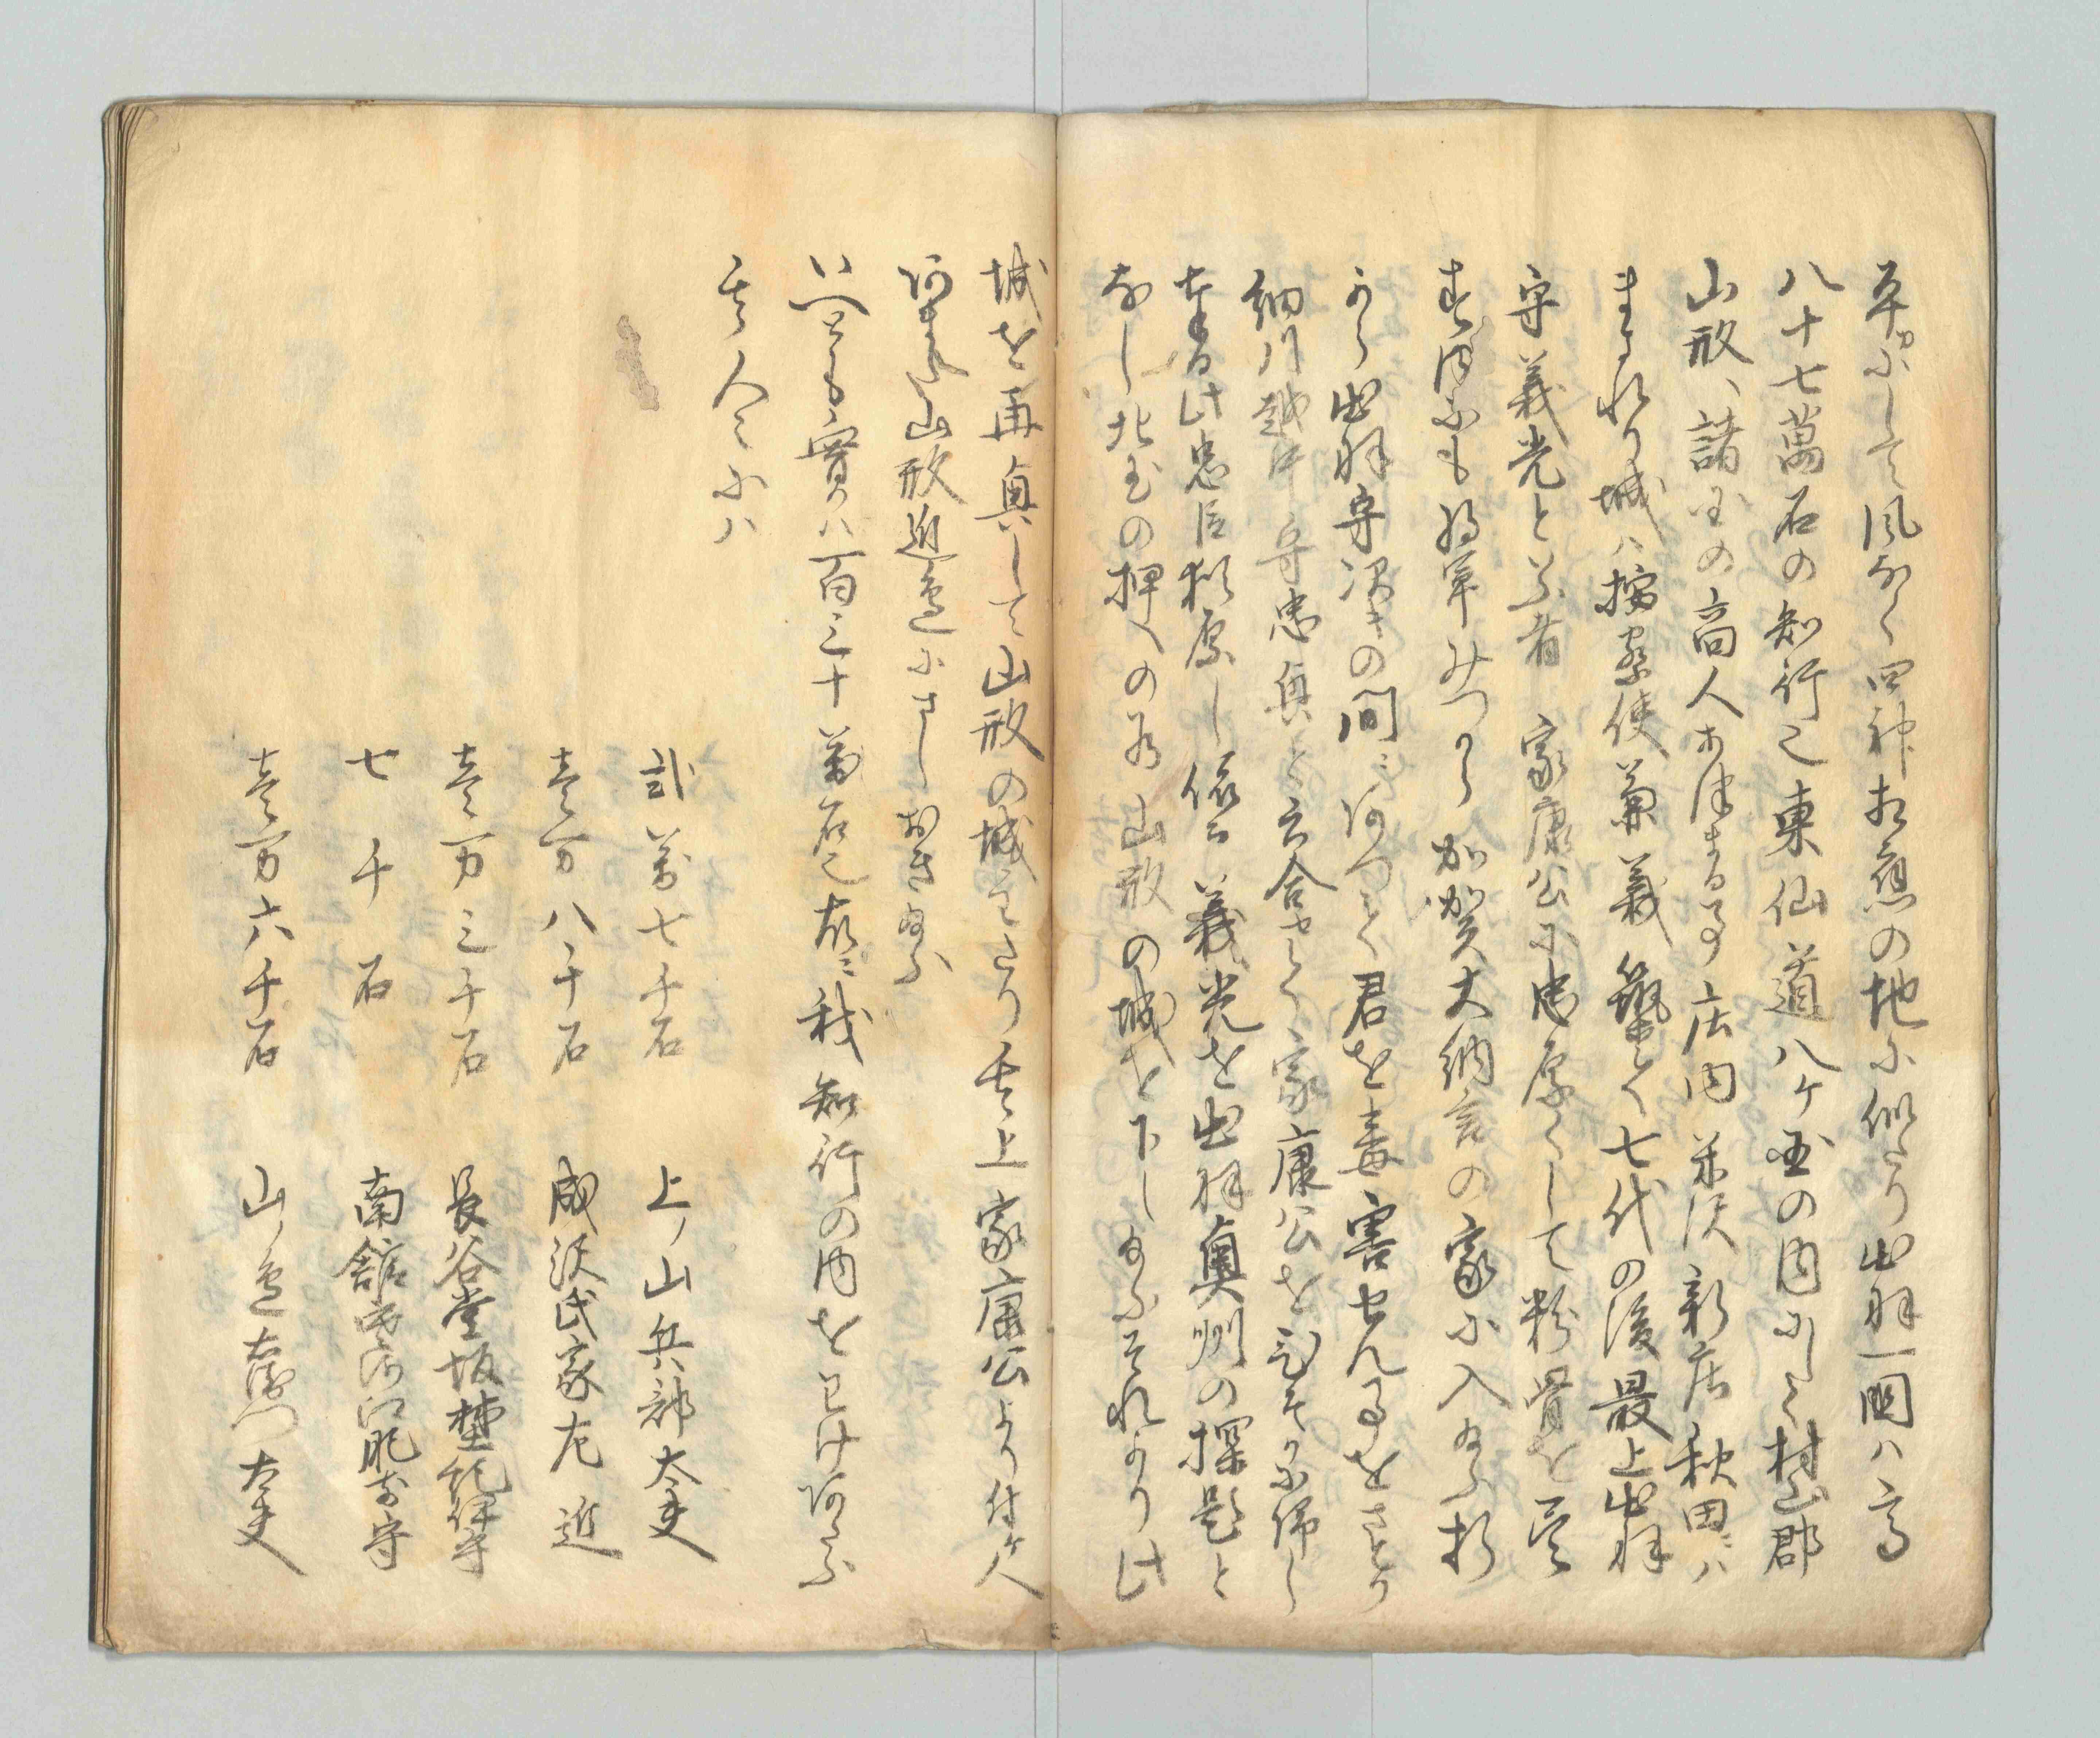 平かにして風なく四神相應の地に似たり出羽一國ハ高
八十七萬石の知行也東仙道八ケ国の内にして村山郡
山形ハ諸国の商人あつまる事庄内米沢新庄秋田ハ
まされり城ハ按察使兼義築て七代の後最上出羽
守義光といふ者家康公に忠厚くして粉骨を尽
す内にも将軍みつから加賀大納言の家に入給ふ折
から出羽守次きの間ニあつて君を毒害せんる事をさとり
細川越中守忠興と云合せて家康公を
奉る此忠臣 義光を出羽奥州の探題と
なし北国の押への為山形の城を下し給ふそれより此
城を再興して山形の城主たり其上家康公より付人
あまた山形近邉にさし おき給ふ
いへとも實ハ百三十萬石也故ニ我知行の内をわけあたふ
其人々にハ
弐萬七千石 上ノ山兵部太夫
壱万八千石 成沢氏家左近
壱万三千石 長谷堂坂埜紀伊守
七千石 南舘 肥前守
壱万六千石 山ノ邉右衛門太夫